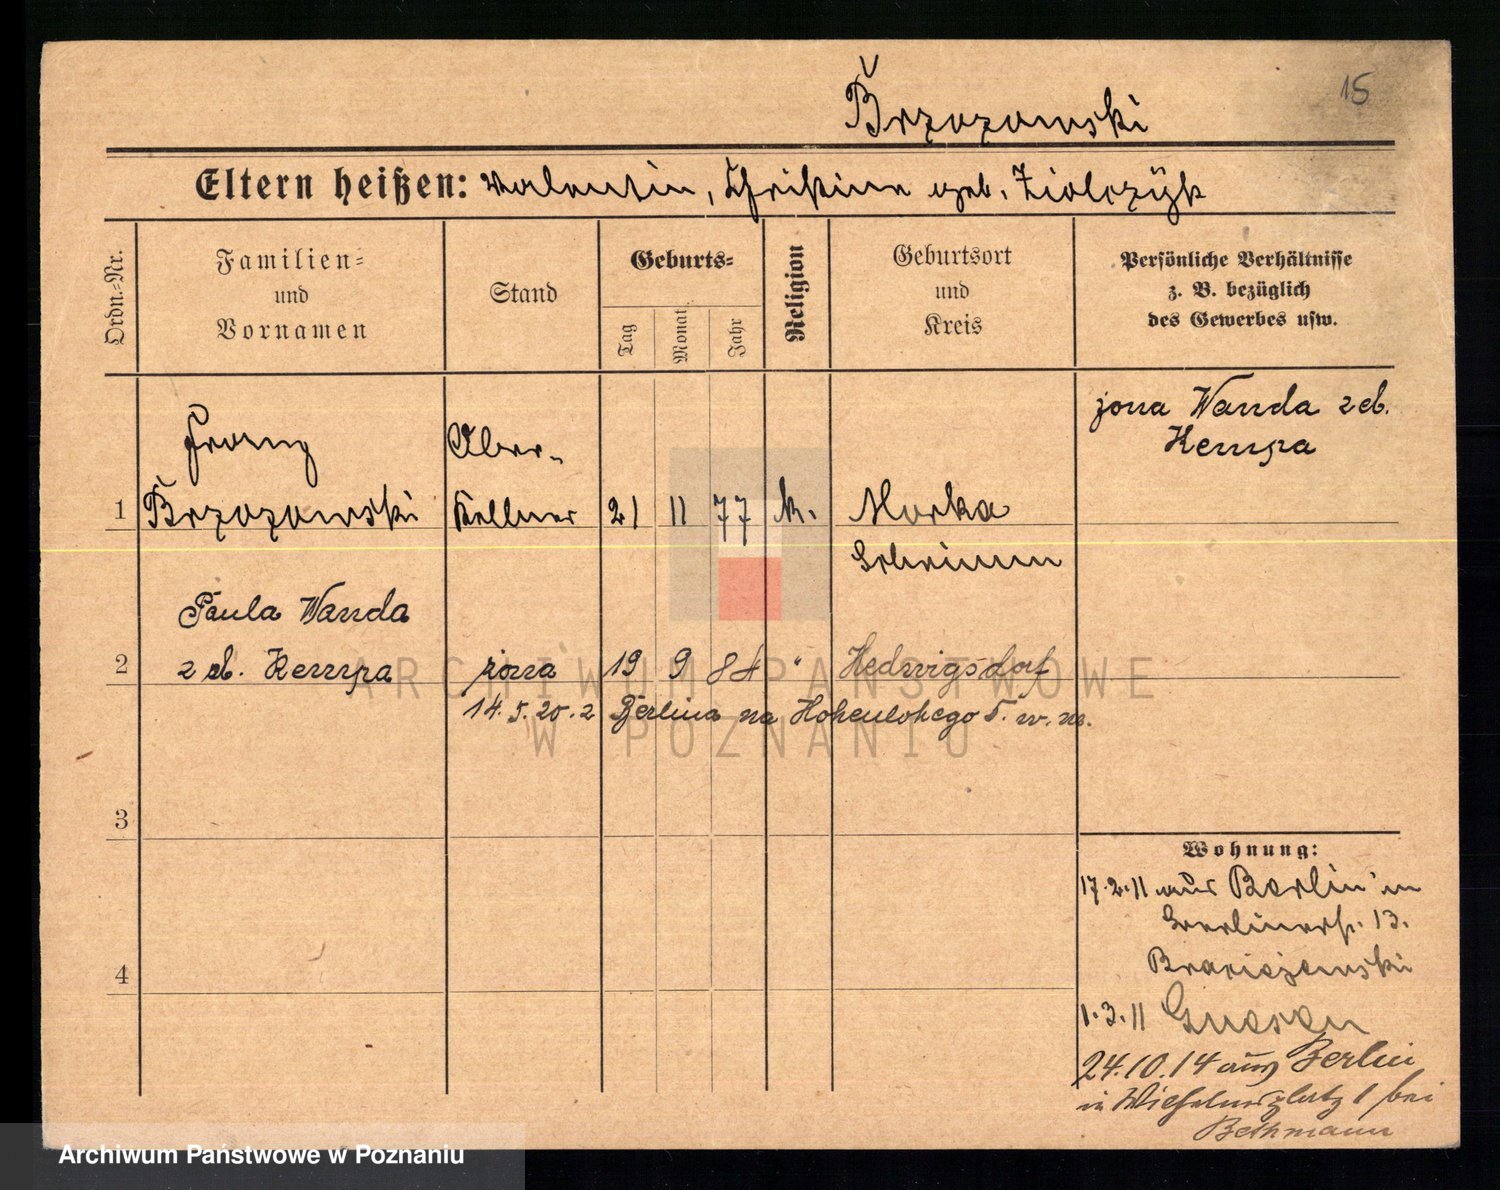 15
Brzozowski
Eltern heißen: Valentin, Christine geb. Ziolczyk
Ordn.-Nr.
Familien-
und
Vornamen
Stand
Geburts-
Tag
Monat
Jahr
Religion
Geburtsort
und
Kreis
Persönliche Verhältnisse
z. B. bezüglich
des Gewerbes usw.
żona Wanda z d.
Kempa
Franz
Ober-
1 Brzozowski Kellner 21 11 77 k. Morka
Schrimm
Paula Wanda
2 z d. Kempa żona 19 9 84 " Hedwigsdorf
14.5.20. z Berlina na Hohenlohego 5. w. m.
3
4
Wohnung:
17.2.11 aus Berlin in
Berlinerstr. 13.
1.3.11 Gnesen
24.10.14 aus Berlin
in Wilhelmsplatz 1 bei
Bethmann
ARCHIWUM PAŃSTWOWE
W POZNANIU
Archiwum Państwowe w Poznaniu